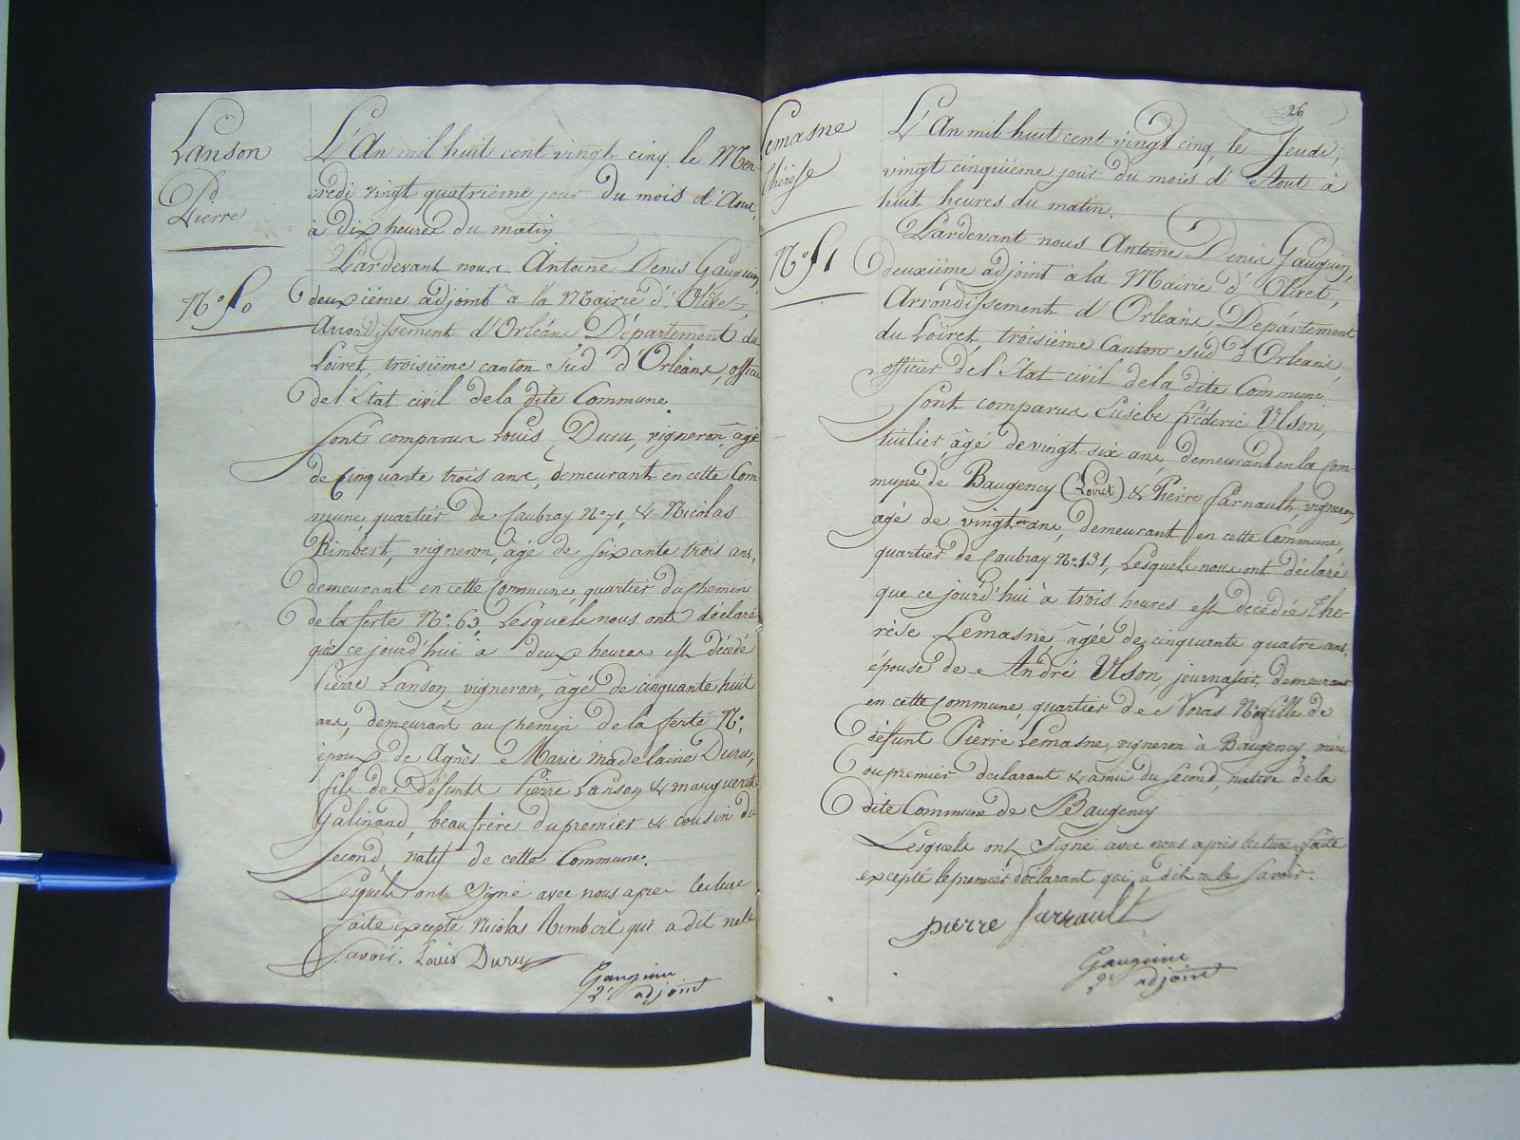 Lanson
Pierre
N.° 50
L'An mil huit cent vingt cinq le Mer-
credi vingt quatrieme jour du mois d'Aout,
à dix heures du matin
Pardevant nous Antoine Denis Gauguin,
deuxiëme adjoint à la Mairie d'Olivet,
Arrondissement d'Orléans Département du
Loiret, troisiëme canton sud d'Orléans, officier
de l'Etat civil de la dite Commune.
Sont comparus Louis Duru, vigneron, âgé
de cinquante trois ans, demeurant en cette Com-
mune, quartier de Caubray N° 71, & Nicolas
Rimbert, vigneron, âgé de soixante trois ans,
demeurant en cette Commune, quartier du chemin
de la ferte N.° 63 Lesquels nous ont déclaré
que cejourd'hui à deux heures est décédé
Pierre Lanson, vigneron, âgé de cinquante huit
ans, demeurant au chemin de la ferté N.°
époux de Agnès Marie madelaine Duru,
fils de défunts Pierre Lanson & marguerite
Galinand, beaufrère du premier & cousin du
second, natif de cette Commune.
Lesquels ont signé avec nous après lecture
faite excepté Nicolas Rimbert qui a dit ne le
savoir. Louis Duru
Gauguin
2e adjoint
26
Lemasne
Thérèse
N.° 51
L'An mil huit cent vingt cinq, le Jeudi,
vingt cinquiëme jour du mois d'Aout à
huit heures du matin.
Pardevant nous Antoine Denis Gauguin,
deuxiëme adjoint à la Mairie d'Olivet,
Arrondissement d'Orléans, Département
du Loiret, troisiëme Canton sud d'Orléans,
officier de l'Etat civil de la dite Commune.
Sont comparus Eusebe frederic Ulson,
tuilier, âgé de vingt six ans, demeurant en la Com-
mune de Baugency (Loiret) & Pierre Farnault, vigneron
agé de vingt ans, demeurant en cette Commune,
quartier de Caubray N° 131, Lesquels nous ont déclaré
que ce jourd'hui à trois heures est décédée Thé-
rèse Lemasne, âgée de cinquante quatre ans,
épouse de André Ulson, journalier, demeurant
en cette Commune, quartier de Noras N° fille de
défunt Pierre Lemasne, vigneron à Baugency, mère
du premier déclarant & amie du second, native de la
dite Commune de Baugency
Lesquels ont signé avec nous après lecture faite
excepté le premier déclarant qui a dit ne le savoir.
pierre farnault
Gauguin
2e adjoint